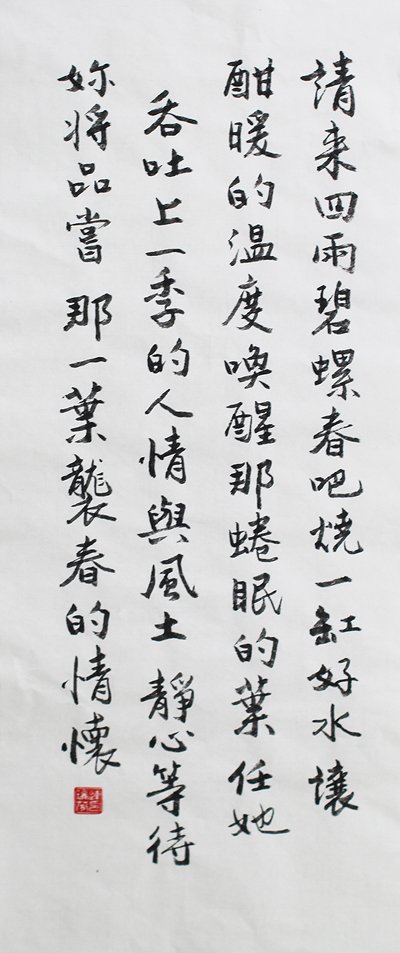 請来四雨碧螺春吧燒一缸好水讓
酣暖的温度喚醒那蜷眠的葉任她
吞吐上一季的人情與風土 靜心等待
妳將品嘗 那一葉襲春的情懷